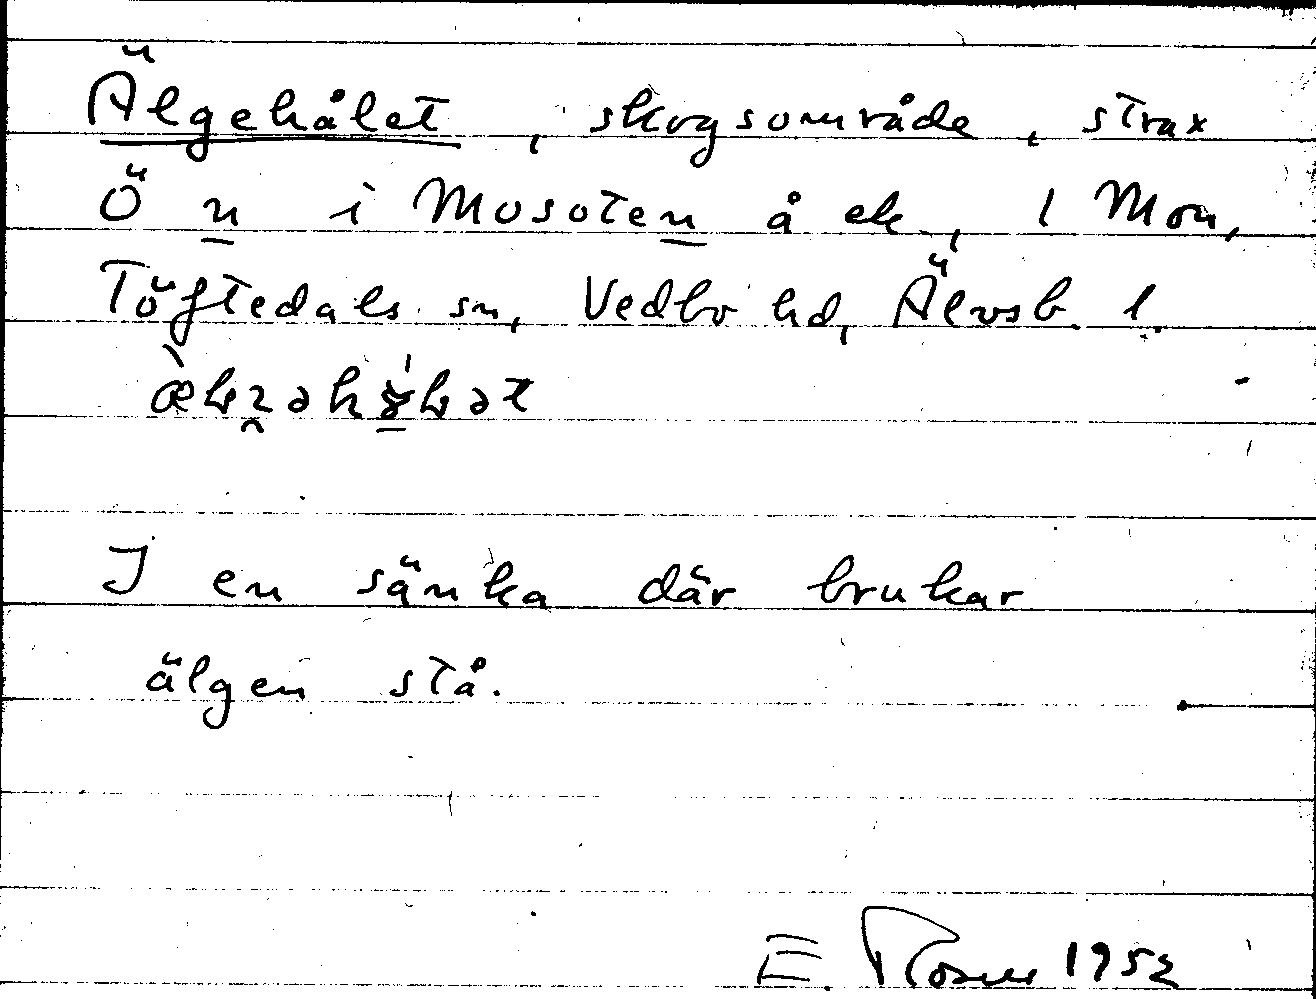 Älgehålet, skogsområde, strax
Ö n i Mosoten å ek., 1 Mon,
Töftedals sn, Vedbo hd, Älvsb. l.
I en sänka där brukar
älgen stå.
E. Rosén 1952